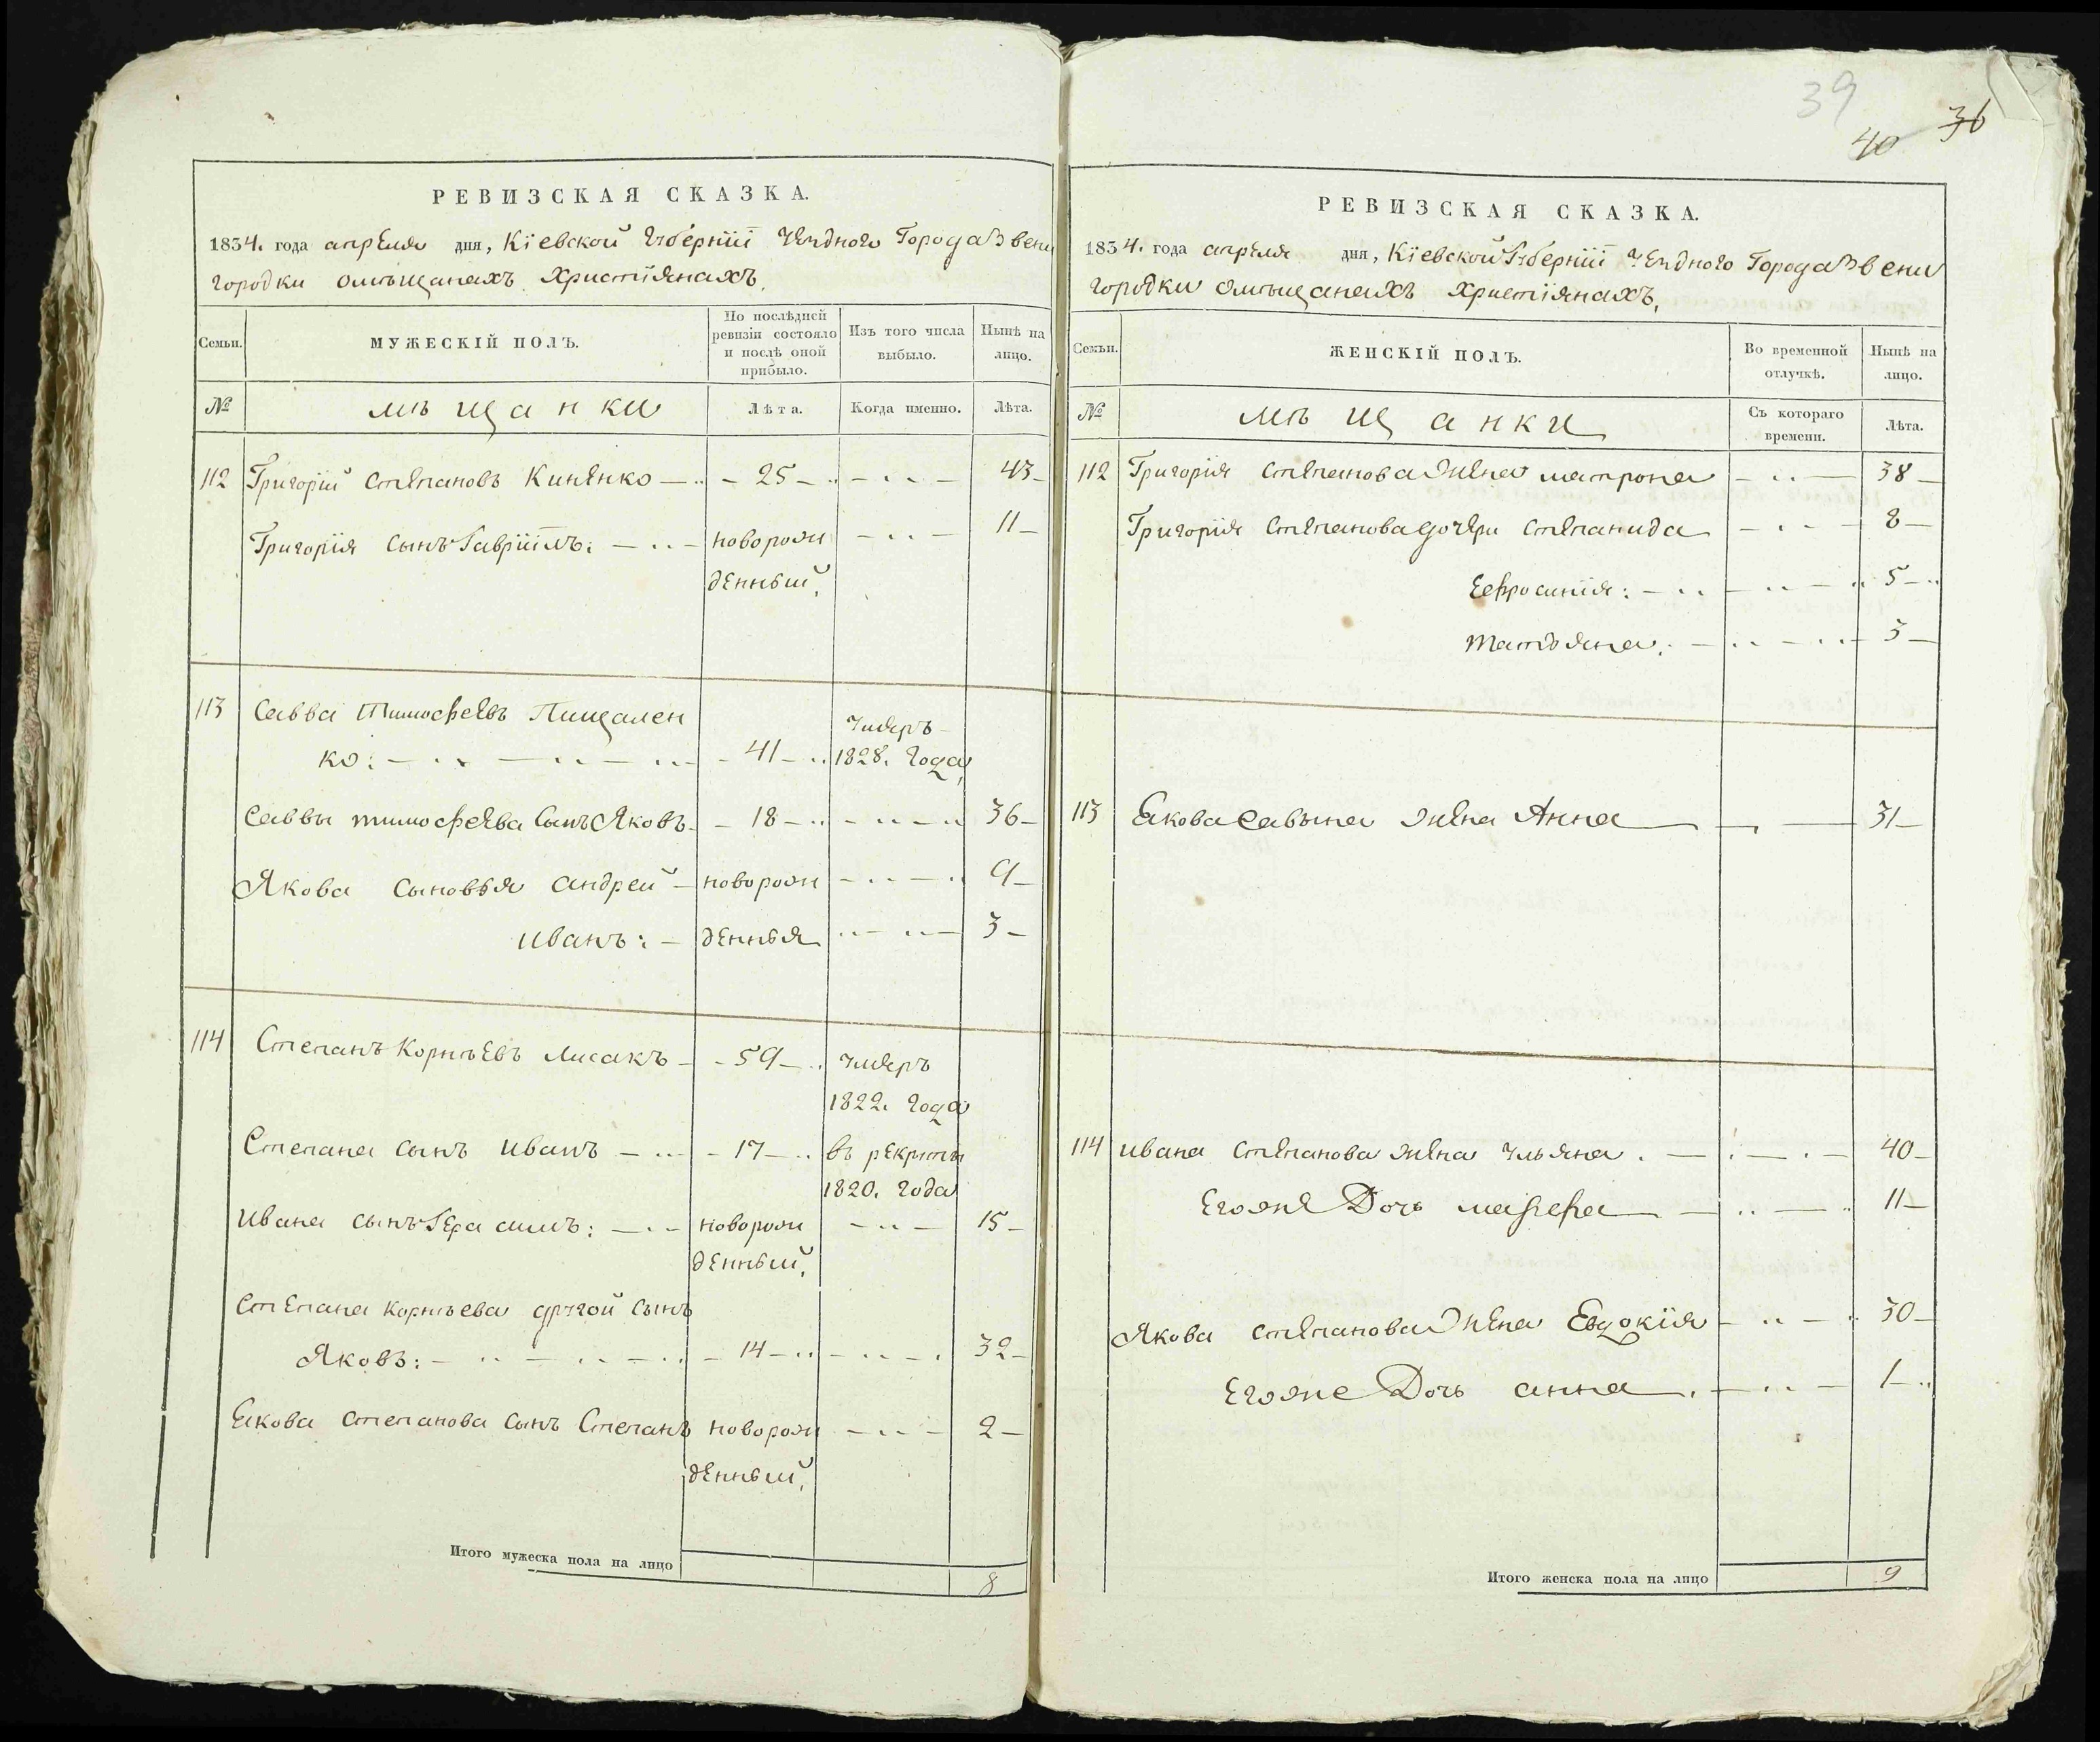 39
40 36
РЕВИЗСКАЯ СКАЗКА.
1834. года апреля дня, Кіевской Губерніи Уезднаго Города Звени
городки омѣщанахъ Христіянахъ.
Семьи. МУЖЕСКІЙ ПОЛЪ. По послѣдней ревизіи состояло и послѣ оной прибыло. Изъ того числа выбыло. Нынѣ на лицо.
№ мѣщанки Лѣта. Когда именно. Лѣта.
112 Григорій Степановъ Киненко — 25 — 43
Григорія сынъ Гавріилъ: — оворож — 11
денный,
113 Савва Тимофеевъ Пищален умеръ
ко: — 41 — 1828. года,
Саввы тимофеева сынъ Яковъ — 18 — 36
Якова сыновья андрей — новорож — 9
иванъ: — денныя — 3
114 Степанъ Корнѣевъ Лисакъ — 59 — умеръ
1822. года
Степана сынъ иванъ — 17 — въ рекруты
1820. года
ивана сынъ Герасимъ: — новорож — 15
денный,
степана корнѣева другой сынъ
Яковъ: — 14 — 32
Якова степанова сынъ Степанъ новорож — 2
денный,
Итого мужеска пола на лицо 8
РЕВИЗСКАЯ СКАЗКА.
1834. года апреля дня, Кіевской Губерніи Уезднаго Города Звени
городки омѣщанахъ христіянахъ,
Семьи. ЖЕНСКІЙ ПОЛЪ. Во временной отлучкѣ. Нынѣ на лицо.
№ мѣщанки Съ котораго времени. Лѣта.
112 Григорія степанова жена матрона — 38
Григорія степанова дочери степанида — 8
Ефросинія: — 5
татьяна: — 3
113 Якова савына жена Анна — 31
114 ивана степанова жена ульяна. — 40
Егожe Дочь марфа — 11
Якова степанова жена Евдокія — 30
Егоже Дочь анна. — 1
Итого женска пола на лицо 9